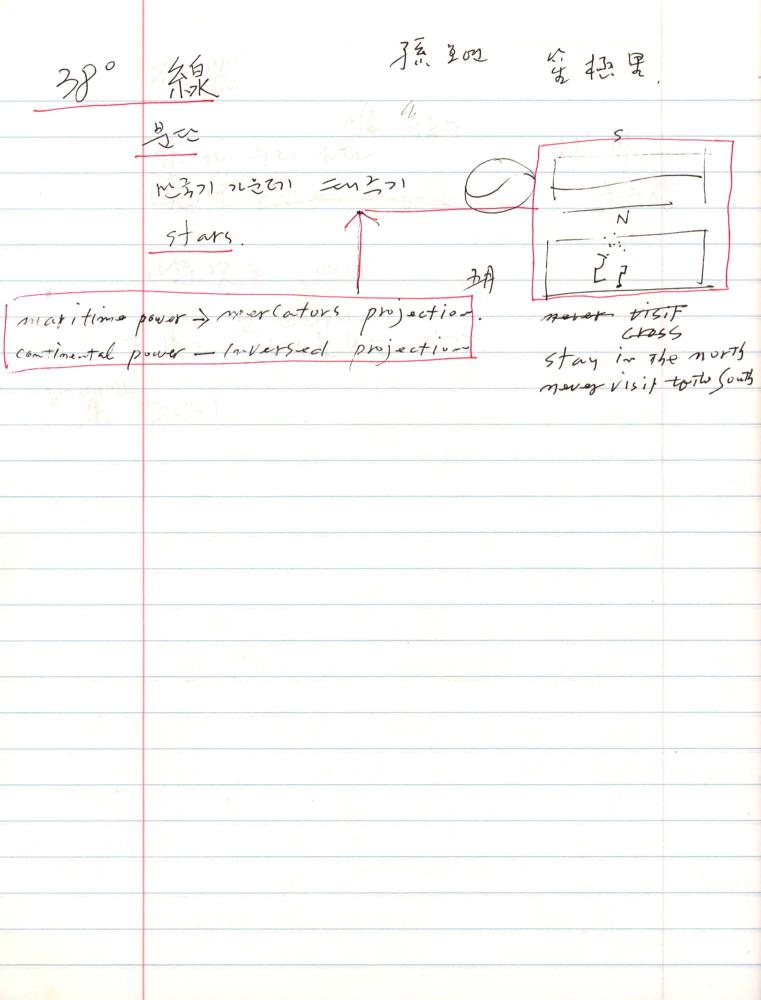 38° 線
孫
분단
만국기 가운데 태극기
S
N
stars.
五月
maritime power → mercators projection.
contimental power – Inversed projection
never visit
cross
stay in the north
never visit to the South